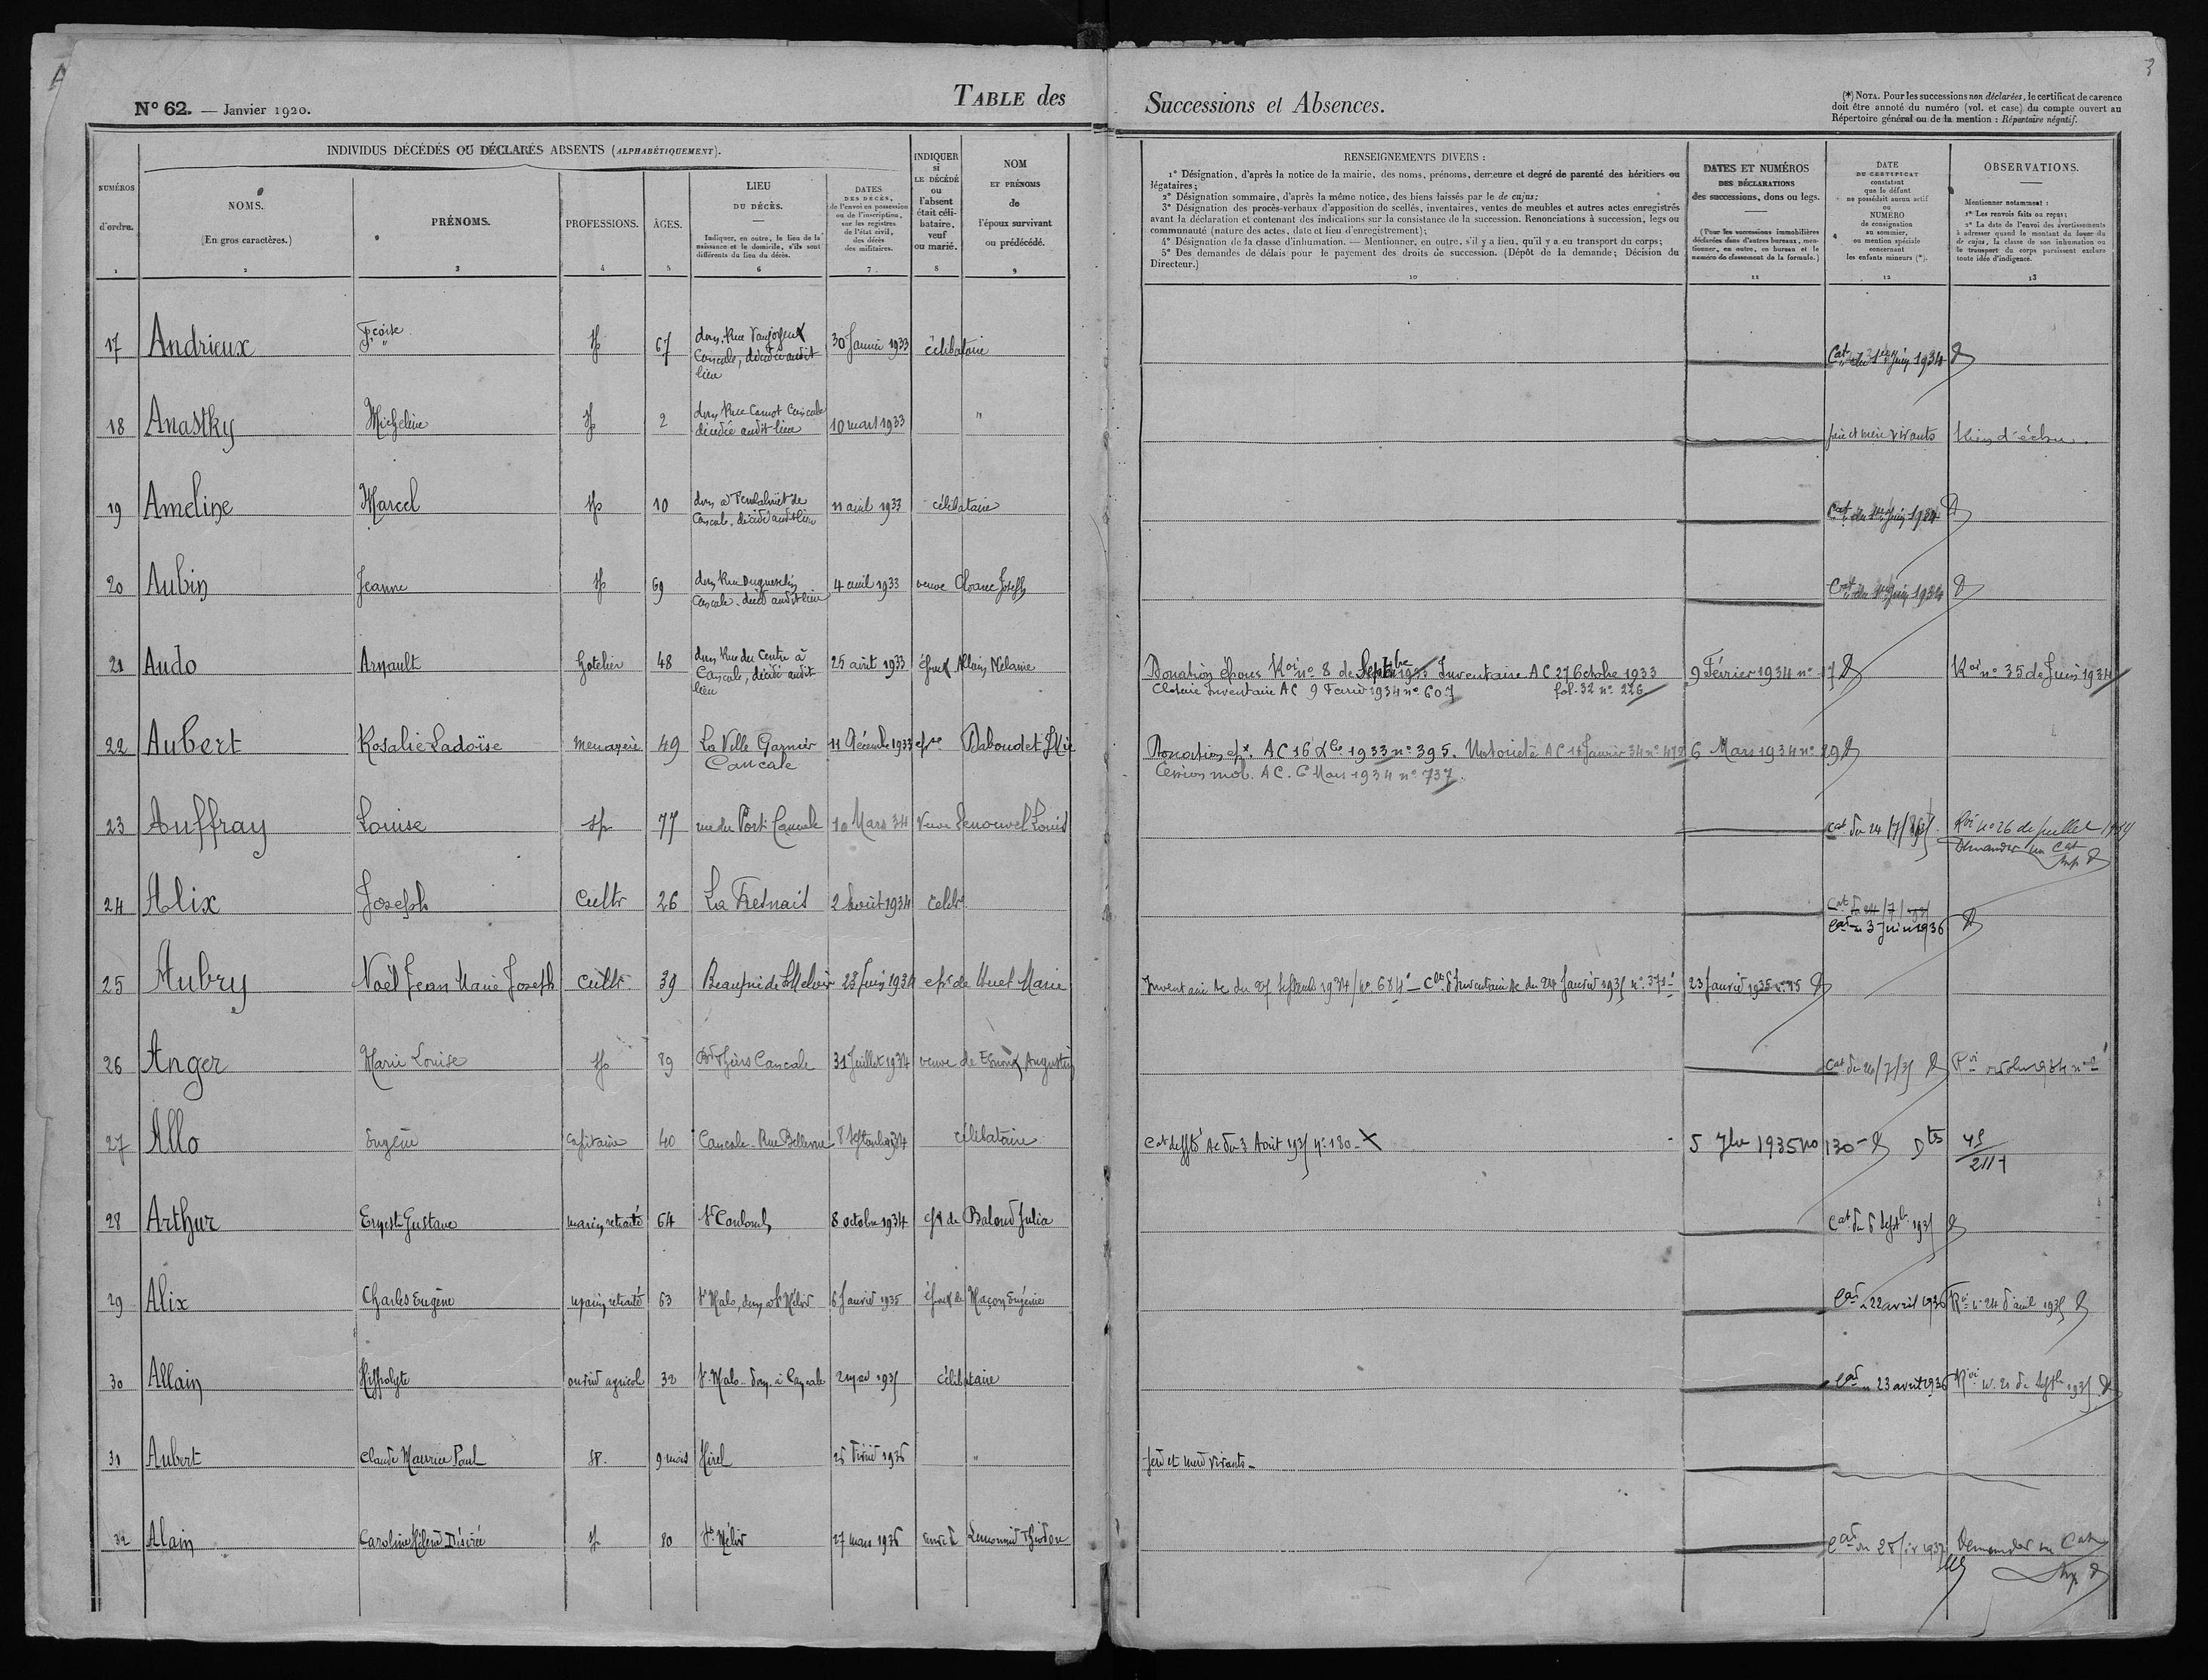 3
N° 62. — Janvier 1920.
TABLE des
Successions et Absences.
(*) NOTA. Pour les successions non déclarées, le certificat de carence
doit être annoté du numéro (vol. et case) du compte ouvert au
Répertoire général ou de la mention : Répertoire négatif.
INDIVIDUS DÉCÉDÉS OU DÉCLARÉS ABSENTS (ALPHABÉTIQUEMENT).
NUMÉROS
d'ordre.
1
NOMS.
(En gros caractères.)
2
PRÉNOMS.
3
PROFESSIONS.
4
ÂGES.
5
LIEU
DU DÉCÈS.
Indiquer, en outre, le lieu de la
naissance et le domicile, s'ils sont
différents du lieu du décès.
6
DATES
DES DÉCÈS,
de l'envoi en possession
ou de l'inscription,
sur les registres
de l'état civil,
des décès
des militaires.
7
INDIQUER
si
LE DÉCÉDÉ
ou
l'absent
était céli-
bataire,
veuf
ou marié.
8
NOM
ET PRÉNOMS
de
l'époux survivant
ou prédécédé.
9
RENSEIGNEMENTS DIVERS :
1° Désignation, d'après la notice de la mairie, des noms, prénoms, demeure et degré de parenté des héritiers ou
légataires;
2° Désignation sommaire, d'après la même notice, des biens laissés par le de cujus;
3° Désignation des procès-verbaux d'apposition de scellés, inventaires, ventes de meubles et autres actes enregistrés
avant la déclaration et contenant des indications sur la consistance de la succession. Renonciations à succession, legs ou
communauté (nature des actes, date et lieu d'enregistrement);
4° Désignation de la classe d'inhumation. — Mentionner, en outre, s'il y a lieu, qu'il y a eu transport du corps;
5° Des demandes de délais pour le payement des droits de succession. (Dépôt de la demande; Décision du
Directeur.)
10
DATES ET NUMÉROS
DES DÉCLARATIONS
des successions, dons ou legs.
(Pour les successions immobilières
déclarées dans d'autres bureaux, men-
tionner, en outre, ce bureau et le
numéro de classement de la formule.)
11
DATE
DU CERTIFICAT
constatant
que le défunt
ne possédait aucun actif
ou
NUMÉRO
de consignation
au sommier,
ou mention spéciale
concernant
les enfants mineurs (*).
12
OBSERVATIONS.
Mentionner notamment :
1° Les renvois faits ou reçus;
2° La date de l'envoi des avertissements
à adresser quand le montant du loyer du
de cujus, la classe de son inhumation ou
le transport du corps paraissent exclure
toute idée d'indigence.
13
17 Andrieux Fcoise sp 67 dom. Rue 30 Janvier 1933 célibataire Cat du 1er Juin 1934
Cancale, décédée audit
lieu
18 Anastky Micheline sp 2 dom Rue Carnot Cancale 10 mars 1933 " père et mère vivants Rien d'échu.
décédée audit lieu
19 Ameline Marcel sp 10 dom à de 11 avril 1933 célibataire Cat du 1er Juin 1934
Cancale, décédé audit lieu
20 Aubin Jeanne sp 69 dom Rue Duguesclin 4 avril 1933 veuve Joseph Cat du 1er Juin 1934
Cancale. décéd audit lieu
21 Audo Arnault hotelier 48 dom Rue du Centre à 25 août 1933 époux Allain Mélanie Donation époux Roi n° 8 de Septbre 1933 Inventaire AC 27 Octobre 1933 9 Février 1934 n° 17 Roi n° 35 de Juin 1934
Cancale, décédé audit Cloture Inventaire AC 9 Février 1934 n° 607 fol. 32 n° 226
lieu
22 Aubert Rosalie Ladoïse menagère 49 La Ville Garnier 11 Décembre 1933 epse Baboudet Donation epx. AC 16 Xbre 1933 n° 395. Notoriété AC 11 Janvier 34 n° 472 6 Mars 1934 n° 29
Cancale Cession mob. AC. 6 Mars 1934 n° 737.
23 Auffray Louise sp 77 rue du Port Cancale 10 Mars 34 Veuve Lenouvel Louis Cat du 24/7/1935 Roi n° 26 de juillet 1934
Demander un Cat
24 Alix Joseph Cultr 26 La Fresnais 2 Août 1934 celibr Cat du 24/7/1935
Cat 3 Juin 1936
25 Aubry Noël Jean Marie Joseph Cultr. 39 23 Juin 1934 epx de Huet Marie Inventaire Ac du 27 Septembre 1934 n° 684 — Clre d'Inventaire Ac du 24 Janvier 1935 n° 371 23 Janvier 1935 n° 15
26 Anger Marie Louise sp 89 Bd Thiers Cancale 31 Juillet 1934 veuve de Augustin Cat du 24/7/35 Roi octobre 1934 n° 2
27 Allo Eugène Capitaine 40 Cancale. Rue Bellevue 8 Septembre 34 célibataire Ac du 3 Août 1935 n° 180 5 7bre 1935 no 130 Dts 45
2111
28 Arthur Ernest Gustave marin retraité 64 St Coulomb 8 octobre 1934 epx de Baloud Julia Cat du 6 Septb. 1935
29 Alix Charles Eugène marin retraité 63 St Malo, dom à St Méloir 6 Janvier 1935 époux de Maçon Eugénie Cat 22 avril 1936 Roi n° 24 d'avril 1935
30 Allain Hippolyte ouvrier agricol 32 St Malo dom. à Cancale 2 1935 célibataire Cat 23 avril 1936 Roi n° 21 de Septbre 1935
31 Aubert Claude Maurice Paul sp. 9 mois Hirel 26 Février 1936 " père et mère vivants
32 Alain Caroline Hélène Désirée sp 80 St Méloir 27 mars 1936 veuve d Lemonnier Théodore 1937 Demander un Cat